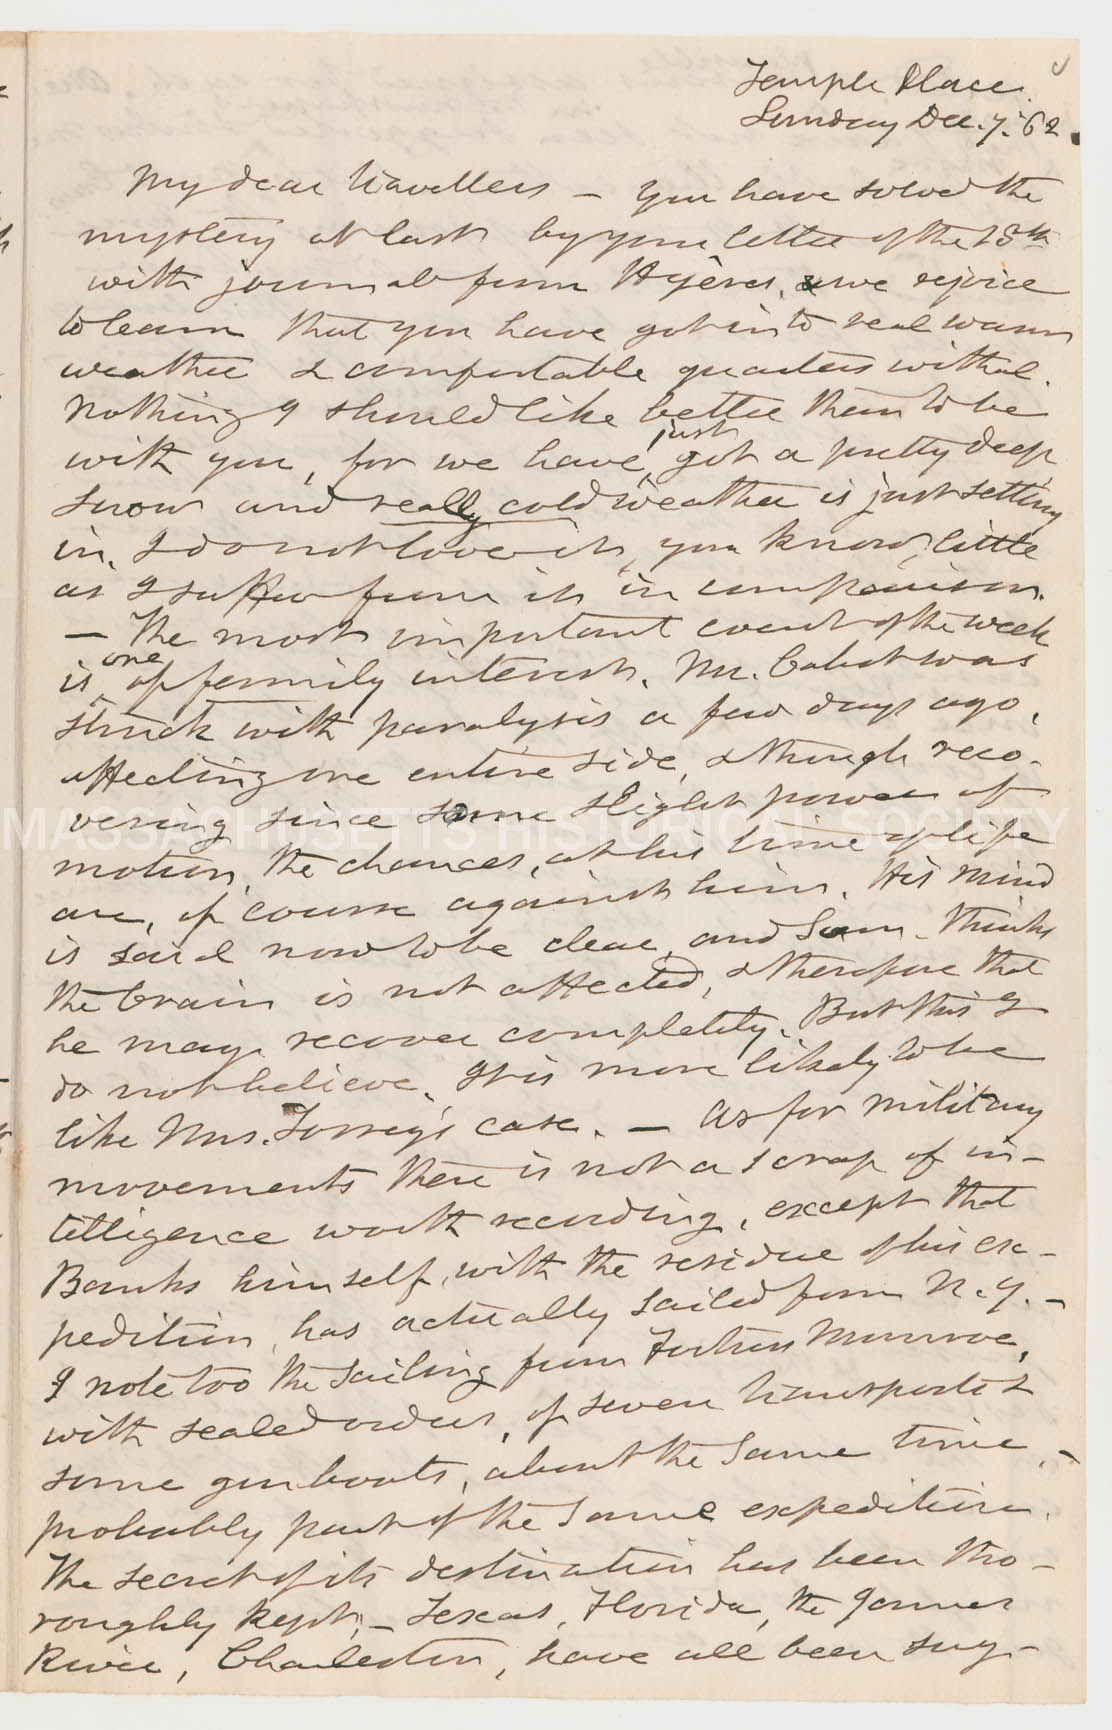 Temple Place.
Sunday Dec. 7. '62.
My dear travellers – you have solved the
mystery at last by your letter of the 15th
with journal from Hyères, & we rejoice
to learn that you have got into real warm
weather & comfortable quarters withal.
Nothing I should like better than to be
with you, for we have just got a pretty deep
snow and really cold weather is just setting
in. I do not love it, you know, little
as I suffer from it in comparison.
– The most important event of the week
is one of family interest. Mr. Cabot was
struck with paralysis a few days ago,
affecting one entire side, & though reco-
vering since some slight power of
motion, the chances, at his time of life
are, of course against him. His mind
is said now to be clear, and Sam. thinks
the brain is not affected, & therefore that
he may recover completely. But this I
do not believe. It is more likely to be
like Mrs. Torrey's case. – As for military
movements there is not a scrap of in-
telligence worth recording, except that
Banks himself, with the residue of his ex-
pedition, has actually sailed from N.Y. –
I note too the sailing from Fortress Monroe,
with sealed orders, of seven transports &
some gunboats, about the same time, –
probably part of the same expedition.
The secret of its destination has been tho-
roughly kept; – Texas, Florida, the James
River, Charleston, have all been sug-
MASSACHUSETTS HISTORICAL SOCIETY